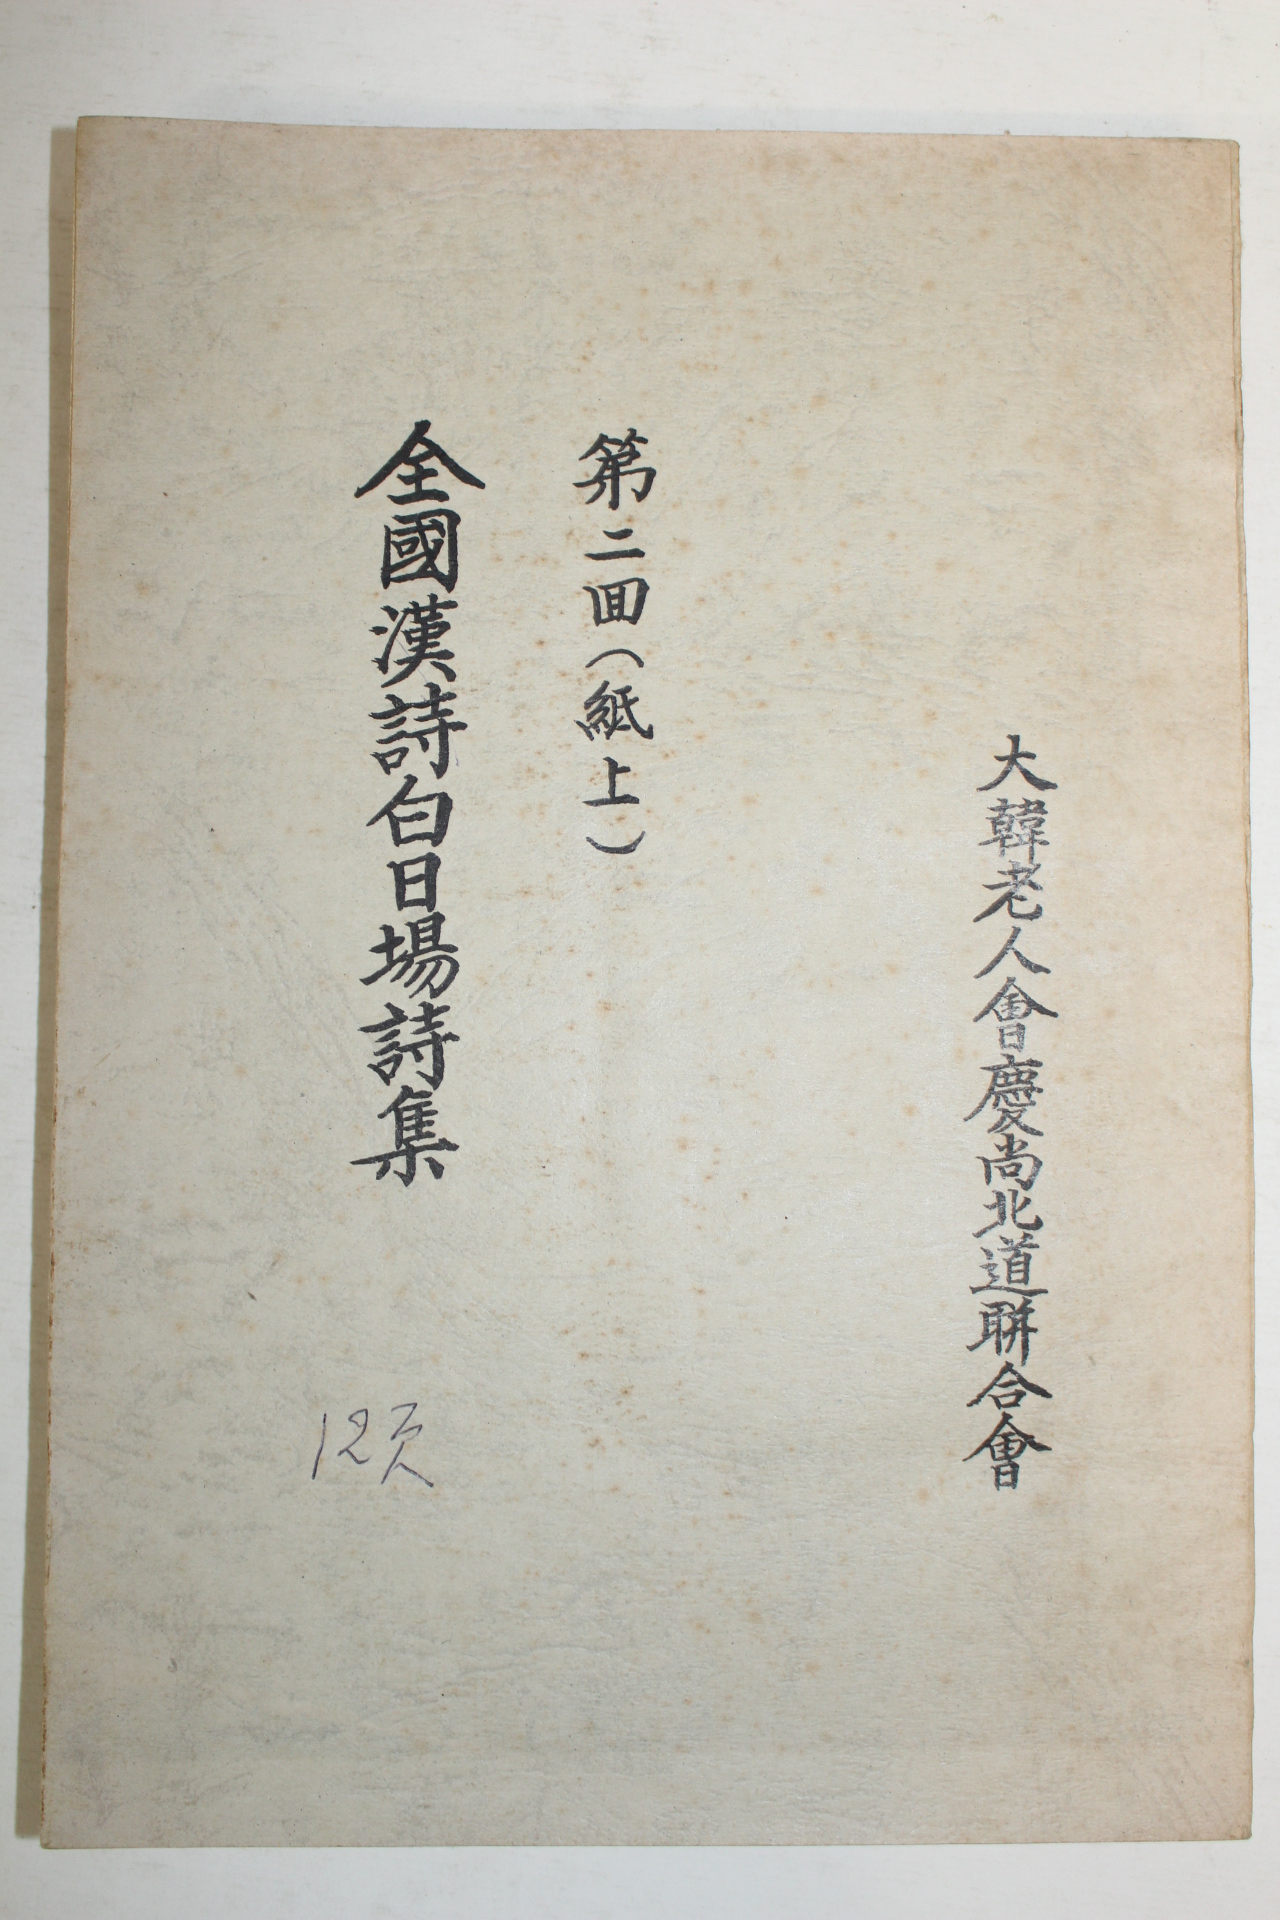 大韓老人會慶尚北道聯合會
第二回(紙上)
全國漢詩白日場詩集
12页